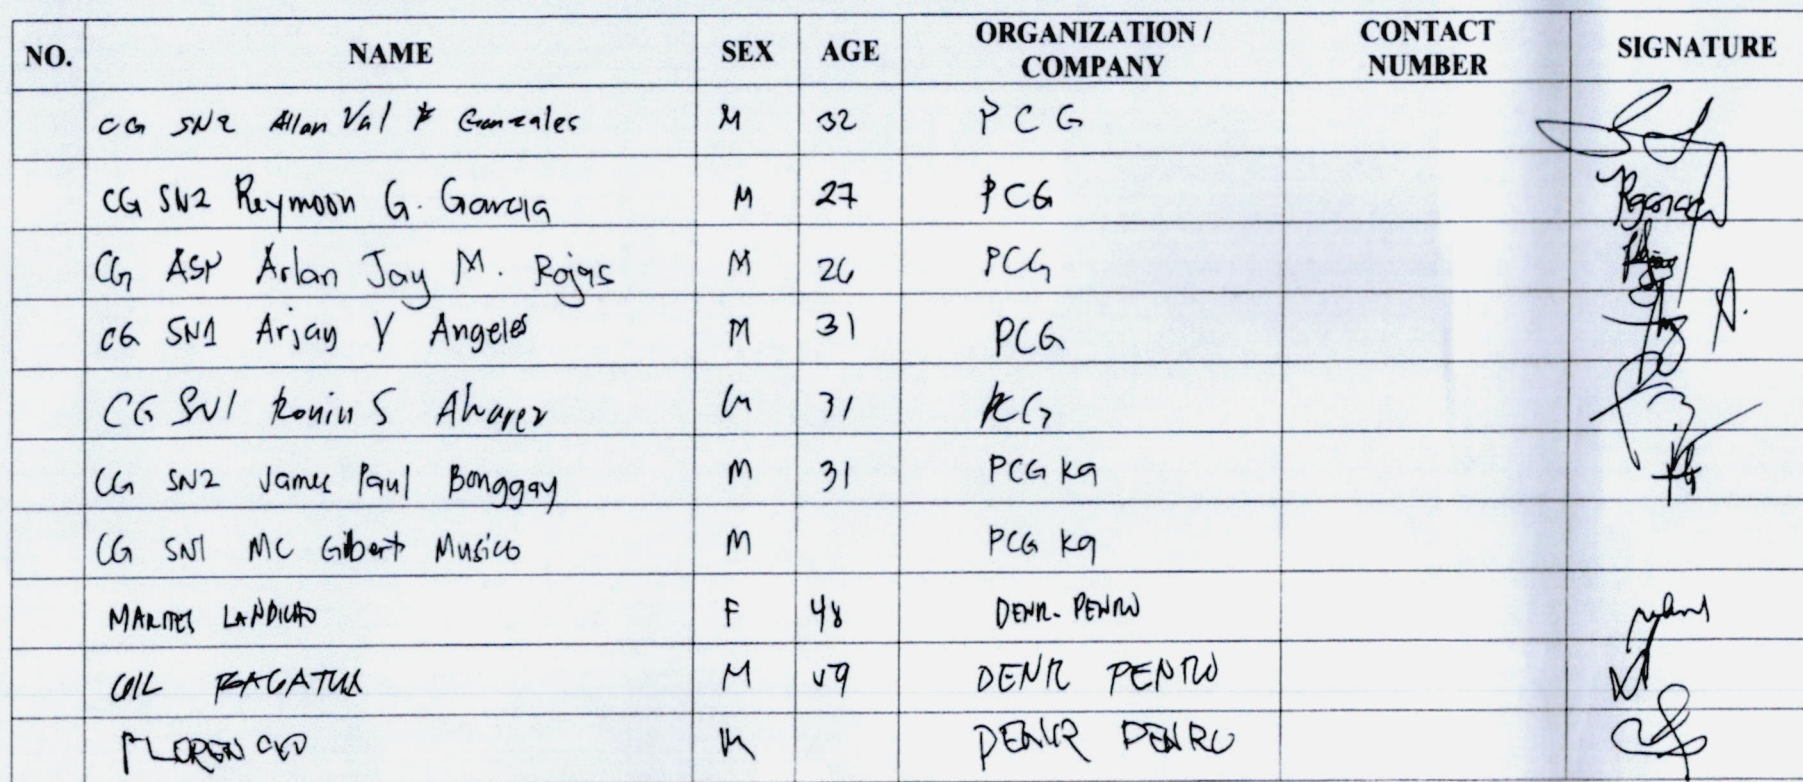 NO. NAME SEX AGE ORGANIZATION / COMPANY CONTACT NUMBER SIGNATURE
CG SN2 Allan Val Gonzales M 32 PCG
CG SN2 Reymoon G. Garcia M 27 PCG
CG ASN Arlan Jay M. Rojas M 26 PCG
CG SN1 Arjay V Angeles M 31 PCG
CG SN1 Ronin S Alvarez M 31 PCG
CG SN2 James Paul Bonggay M 31 PCG K9
CG SN1 MC Gilbert Musico M PCG K9
MARITES LANDICHO F 48 DENR-PENRO
M 49 DENR PENRO
M DENR PENRO